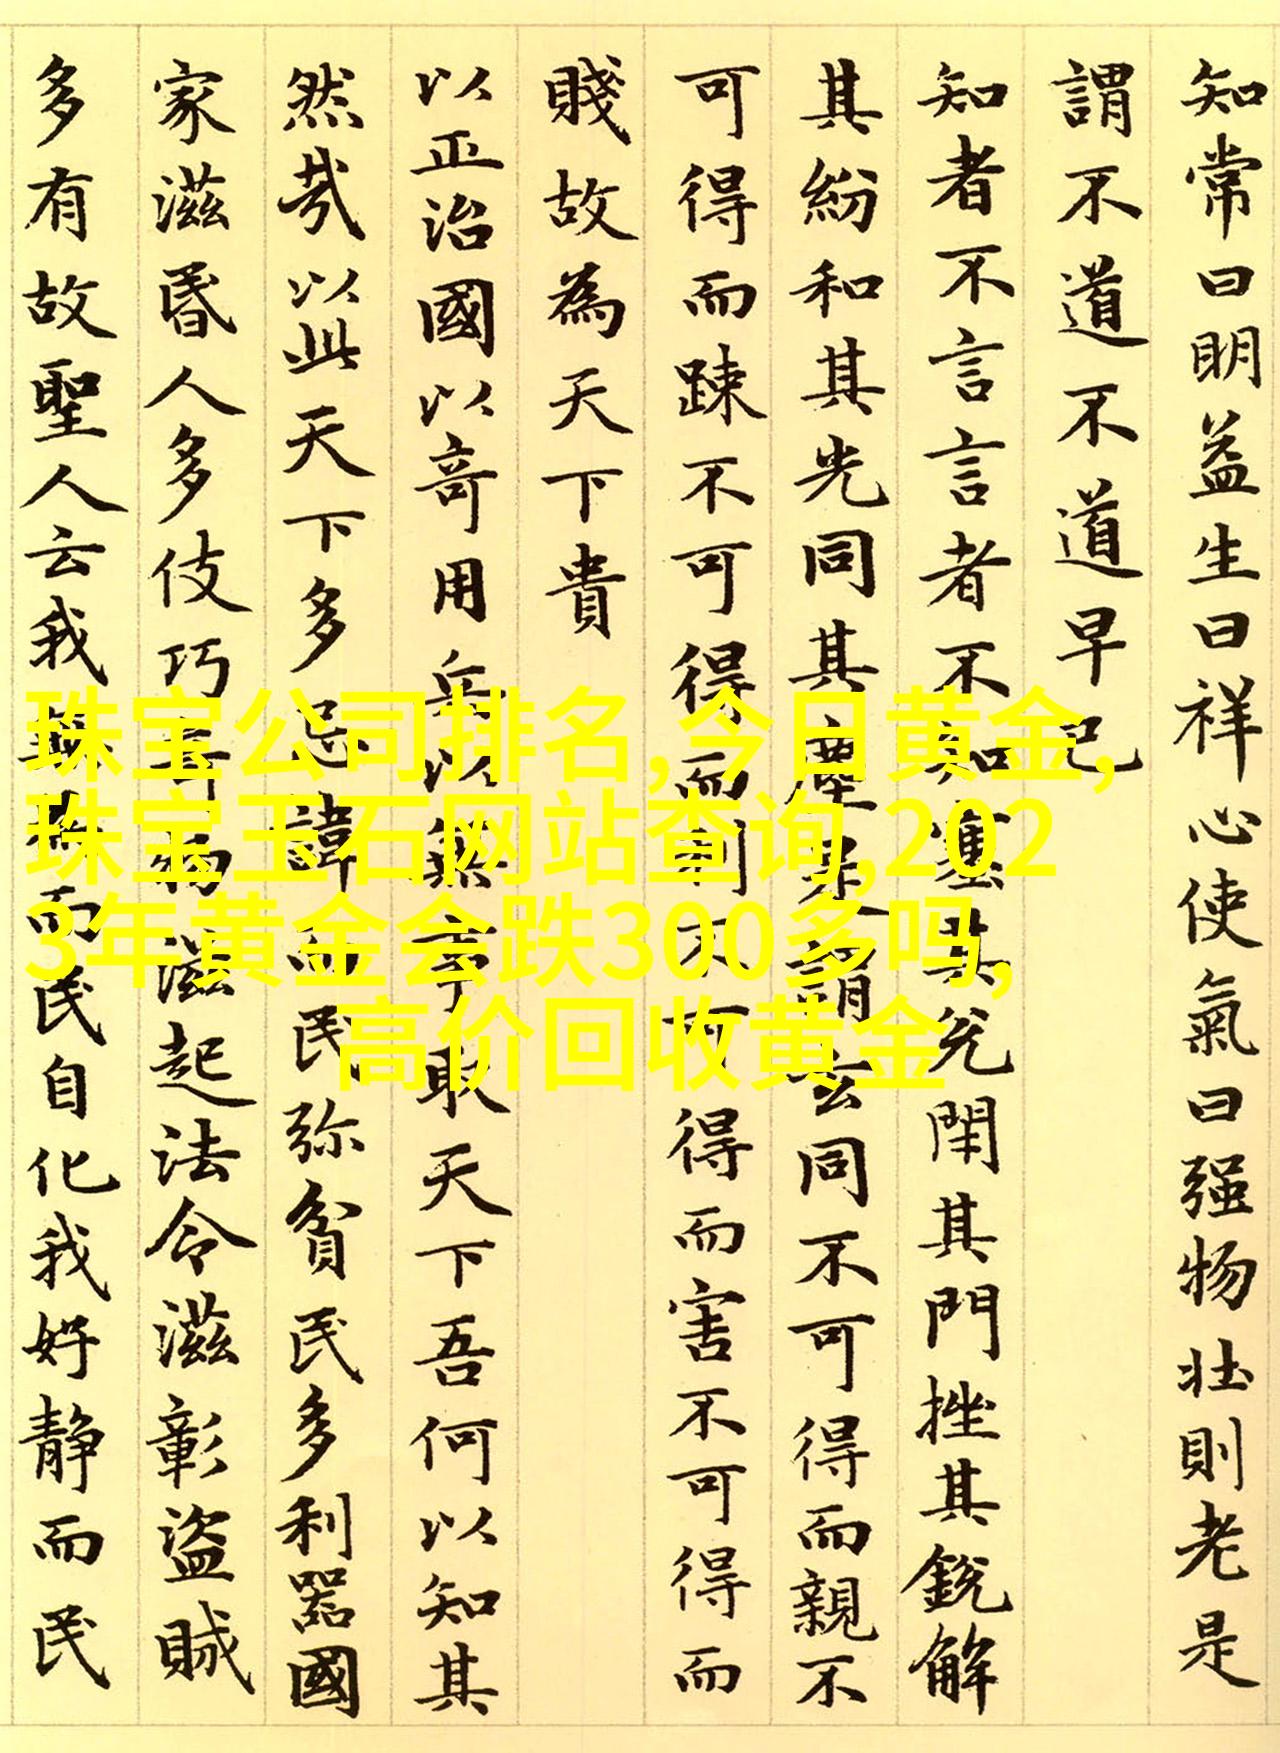 知常曰明益生曰祥心使氣曰强物壯則老是
謂不道不道早已
知者不言言者不知塞其兊閇其門挫其銳解
其紛和其光同其塵是謂玄同不可得而親不
可得而踈不可得而利不可得而害不可得而
賤故為天下貴
以正治國以奇用兵以無事取天下吾何以知其
然哉以此天下多忌諱而民弥貧民多利器國
家滋昬人多伎巧奇物滋起法令滋彰盜賊
多有故聖人云我無為而民自化我好静而民
珠宝公司排名,今日黄金,
珠宝玉石网站查询,202
3年黄金会跌300多吗,
高价回收黄金